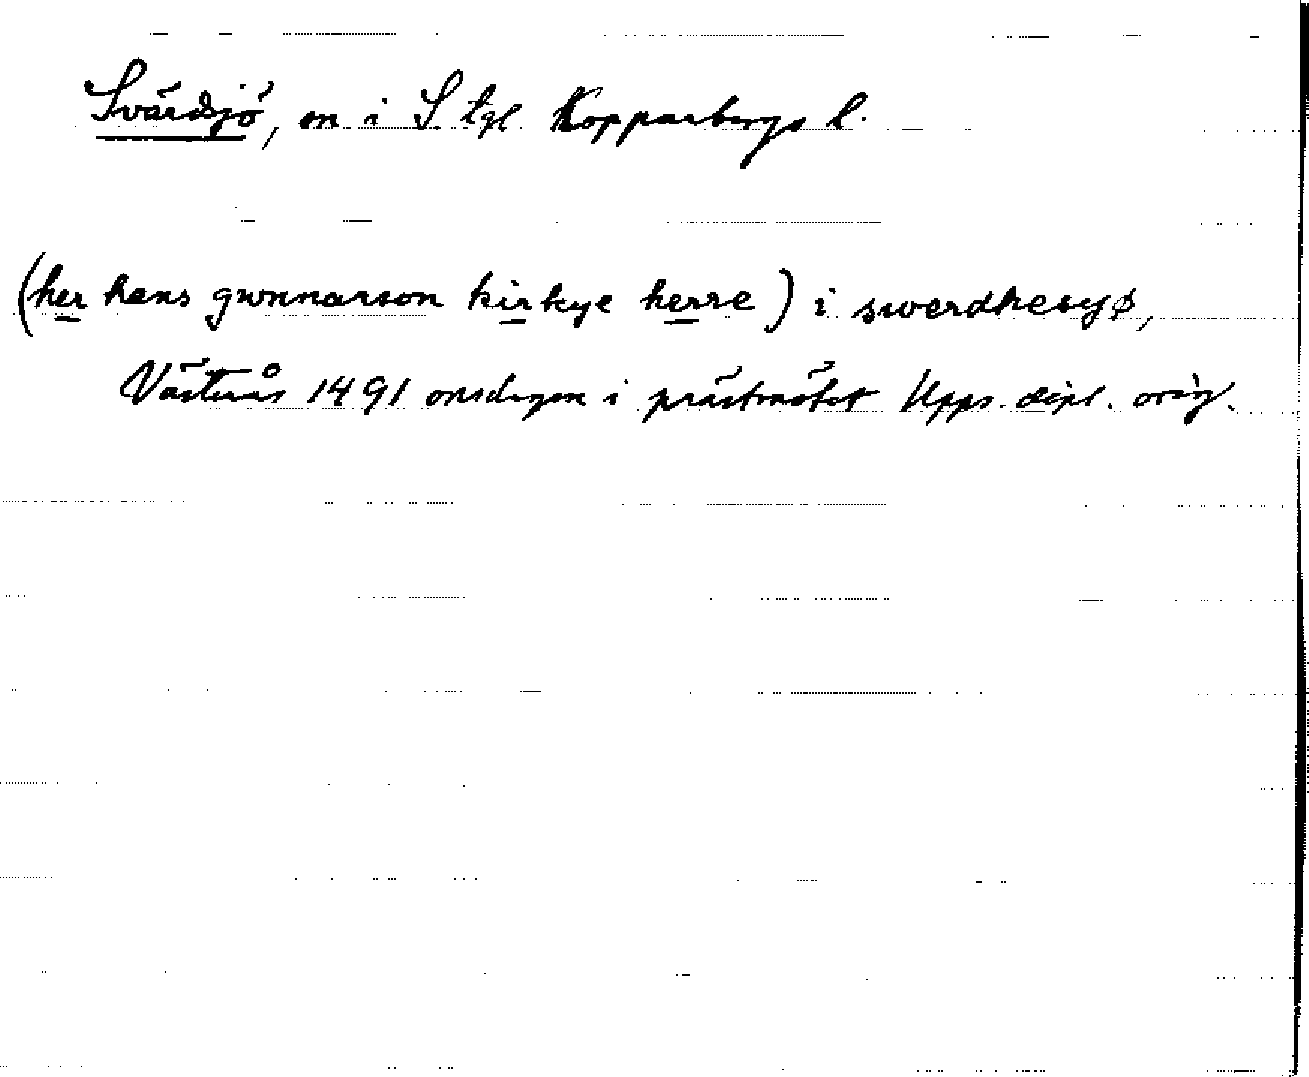 Svärdsjö, sn i S tgl Kopparbergs l.
(her hans gwnnarson kirkye herre) i swerdhesyø,
Västerås 1491 onsdagen i prästmötet Upps. dipl. orig.